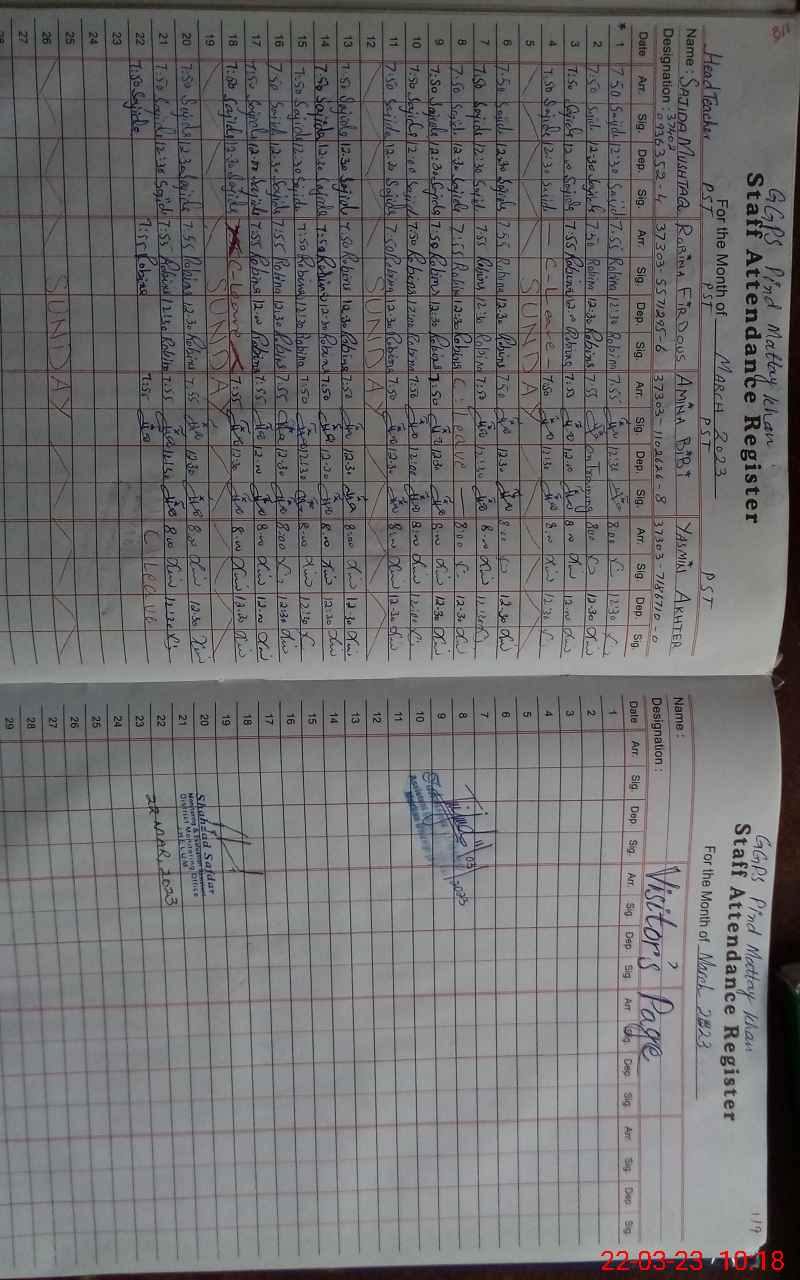 GGPS Pind Mattay Khan
Staff Attendance Register
For the Month of MARCH 2023
Head Teacher PST PST PST
Name : SAJIDA MUSHTAQ ROBINA FIRDOUS AMINA BIBI YASMIN AKHTER
Designation : 37303-5571295-6 37303-1102626-8 37303-7186710-0
Date Arr. Sig. Dep. Sig. Arr. Sig. Dep. Sig. Arr. Sig. Dep. Sig. Arr. Sig. Dep. Sig.
1 7:50 Sajida 12:30 Sajida 7:55 Robina 12:30 Robina 7:55 12:30 8:00 12:30
2 7:50 Sajida 12:30 Sajida 7:50 Robina 12:30 Robina 7:55 on Training 8:00 12:30
3 7:50 Sajida 12:00 Sajida 7:55 Robina 12:00 Robina 7:50 12:00 8:00 12:00
4 7:50 Sajida 12:30 Sajida — C-Leave — 7:50 12:30 8:00 12:30
5 SUNDAY
6 7:50 Sajida 12:30 Sajida 7:55 Robina 12:30 Robina 7:50 12:30 8:00 12:30
7 7:50 Sajida 12:30 Sajida 7:55 Robina 12:30 Robina 7:50 12:30 8:00 12:30
8 7:50 Sajida 12:30 Sajida 7:55 Robina 12:30 Robina C. Leave — 8:00 12:30
9 7:50 Sajida 12:30 Sajida 7:50 Robina 12:30 Robina 7:50 12:30 8:00 12:30
10 7:50 Sajida 12:00 Sajida 7:50 Robina 12:00 Robina 7:50 12:00 8:00 12:00
11 7:50 Sajida 12:30 Sajida 7:50 Robina 12:30 Robina 7:50 12:30 8:00 12:30
12 SUNDAY
13 7:50 Sajida 12:30 Sajida 7:50 Robina 12:30 Robina 7:50 12:30 8:00 12:30
14 7:50 Sajida 12:30 Sajida 7:50 Robina 12:30 Robina 7:50 12:30 8:00 12:30
15 7:50 Sajida 12:30 Sajida 7:50 Robina 12:30 Robina 7:50 12:30 8:00 12:30
16 7:50 Sajida 12:30 Sajida 7:55 Robina 12:30 Robina 7:55 12:30 8:00 12:30
17 7:50 Sajida 12:00 Sajida 7:55 Robina 12:00 Robina 7:55 12:00 8:00 12:00
18 7:50 Sajida 12:30 Sajida C-Leave 7:55 12:30 8:00 12:30
19 SUNDAY
20 7:50 Sajida 12:30 Sajida 7:55 Robina 12:30 Robina 7:55 12:30 8:00 12:30
21 7:50 Sajida 12:30 Sajida 7:55 Robina 12:30 Robina 7:55 12:30 8:00 12:30
22 7:50 Sajida 7:55 Robina 7:55 C Leave
23
24
25
26 SUNDAY
27
28
GGPS Pind Mattay Khan
Staff Attendance Register
For the Month of March 2023
Name : Visitor's Page
Designation :
Date Arr. Sig. Dep. Sig. Arr. Sig. Dep. Sig. Arr. Sig. Dep. Sig. Arr. Sig. Dep. Sig.
1
2
3
4
5
6
7
8
9
10
11
12
13
14
15
16
17
18
19
20 Shahzad Safdar
Monitoring & Evaluation
21 District Monitoring Office
JHELUM
22 22 MAR, 2023
23
24
25
26
27
28
29
22-03-23 10:18